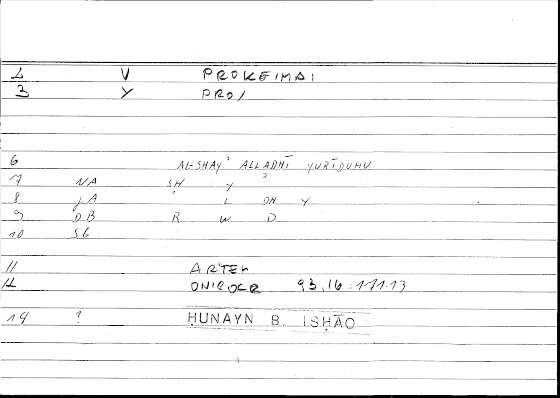 2 V PROKEIMAI
3 Y PRO/
6 AL-SHAYʾ ALLADHĪ YURĪDUHU
7 NA SH Y ʾ
8 JA L DH Y
9 DB R W D
10 SG
11 ARTEM
12 ONIROCR 93,16 : 171.13
14 ? ḤUNAYN B. ISḤĀQ